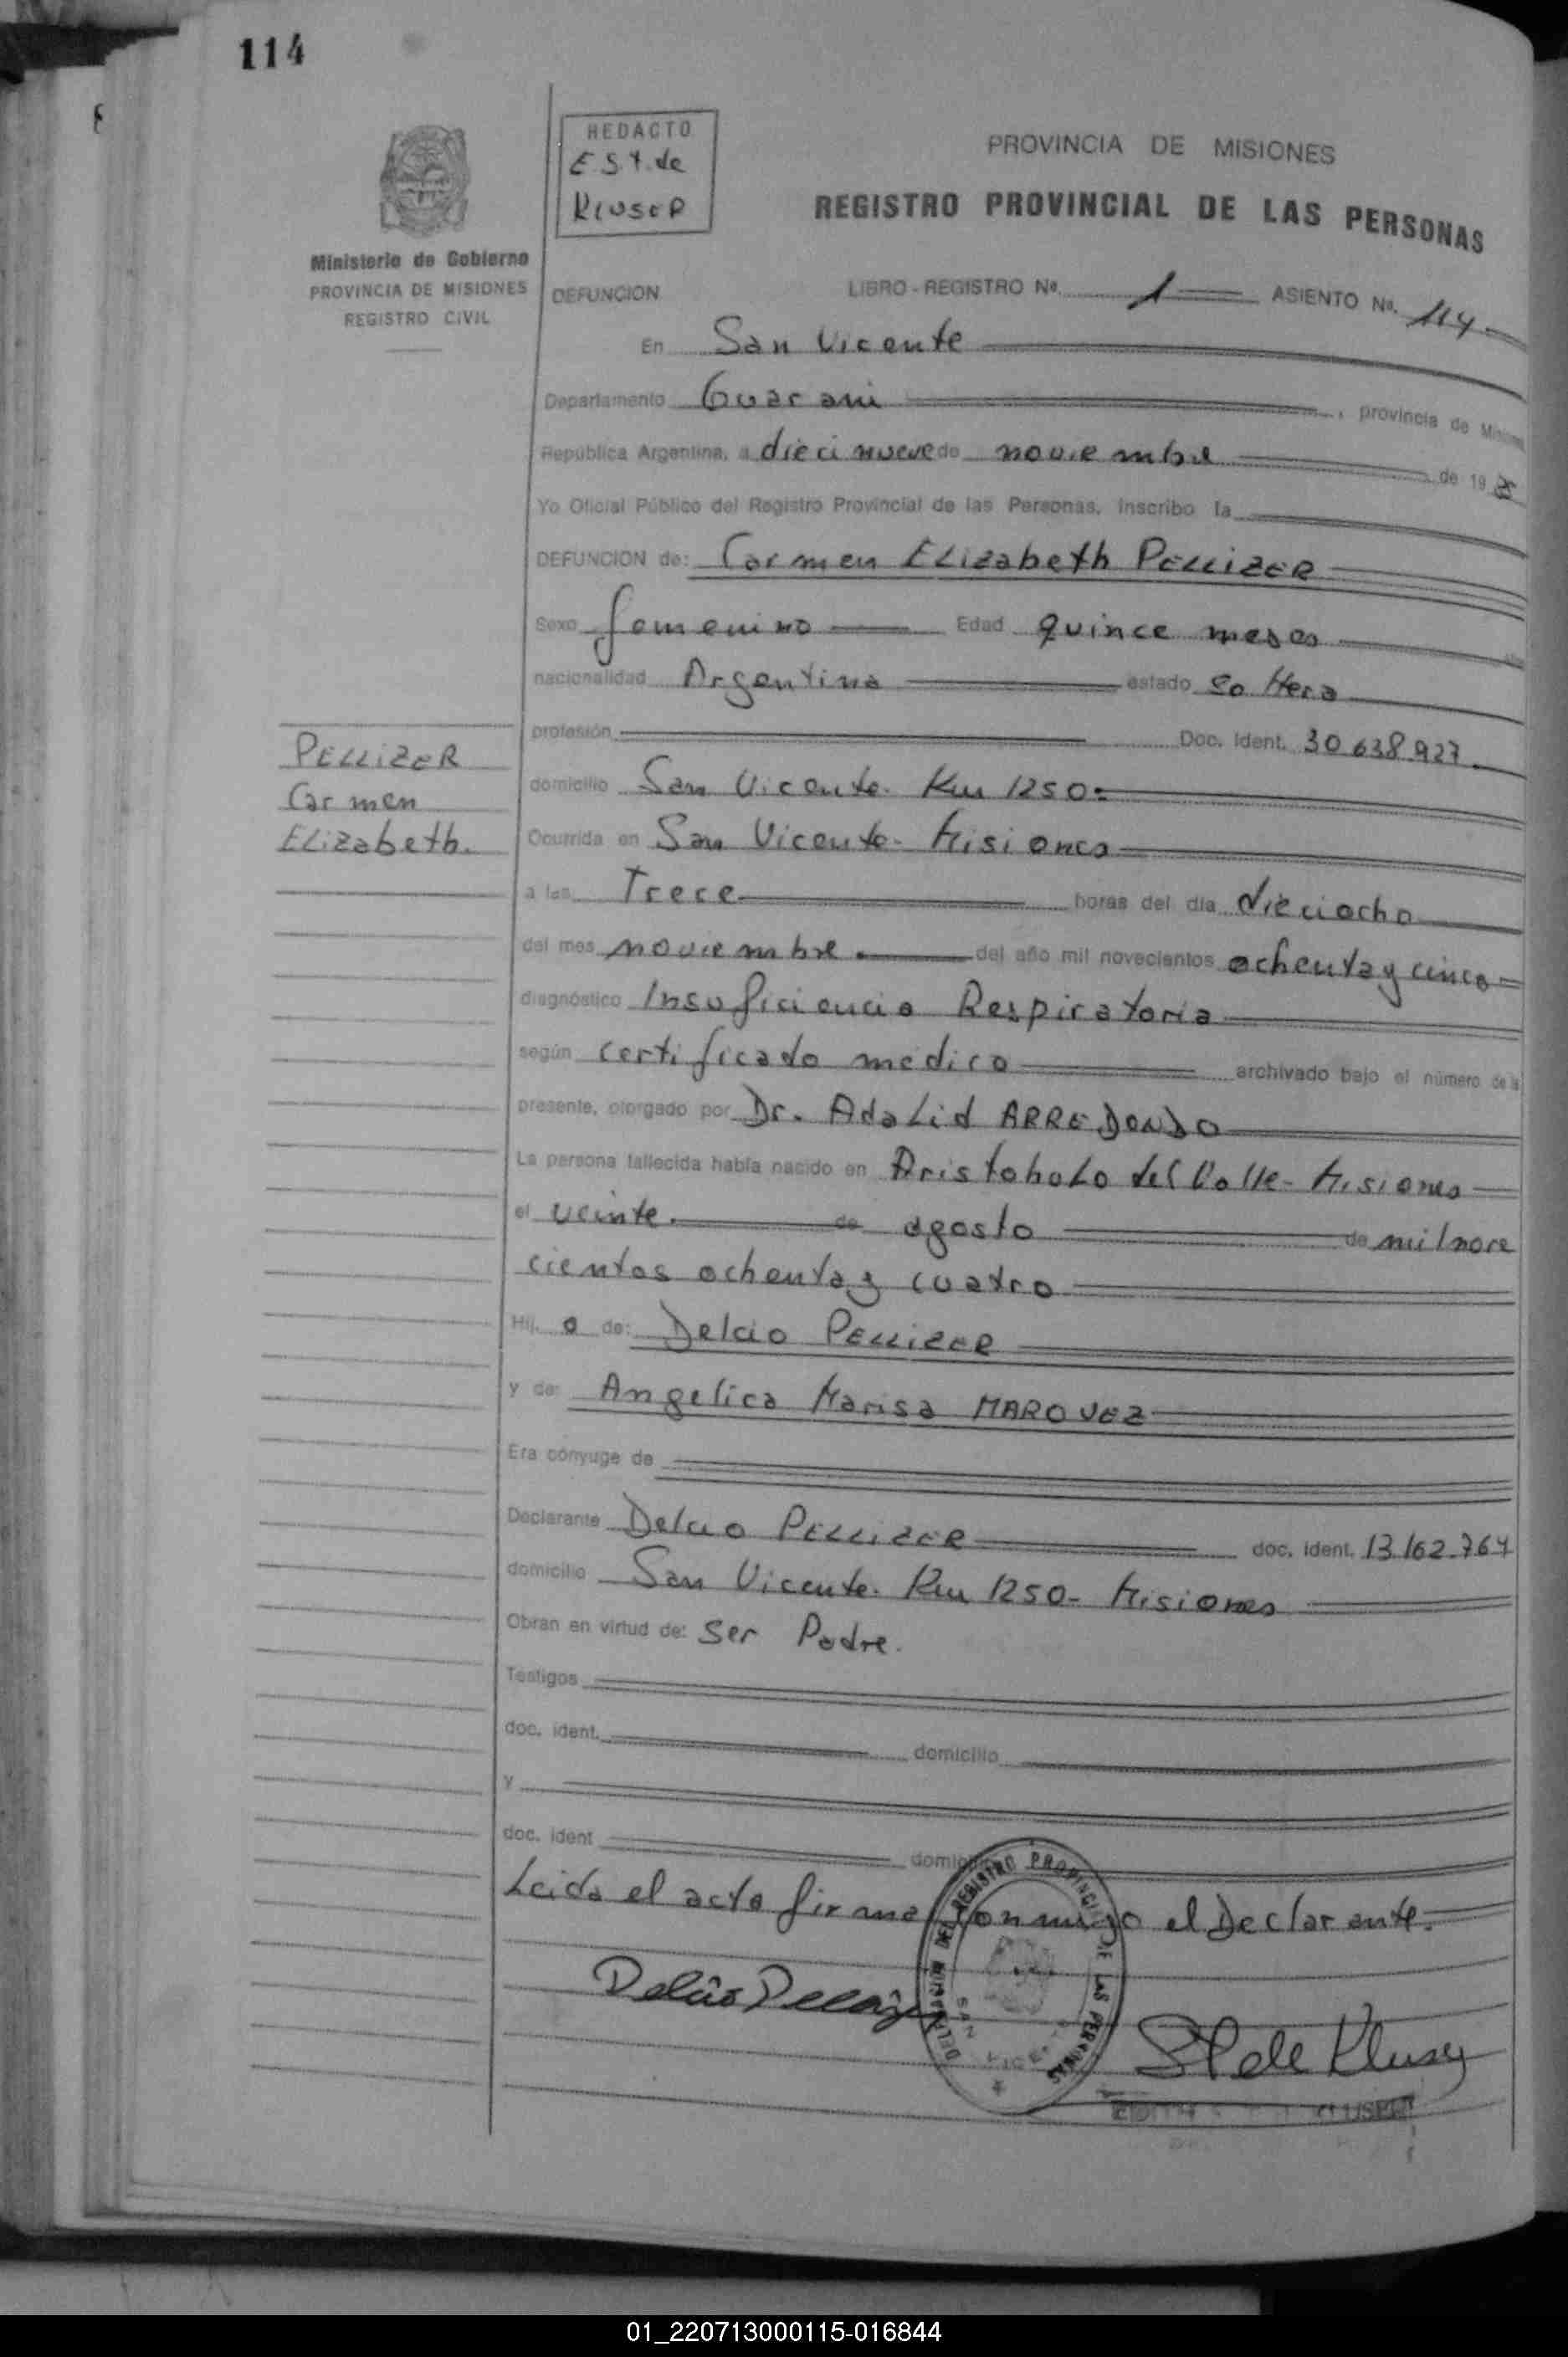 114
Ministerio de Gobierno
PROVINCIA DE MISIONES
REGISTRO CIVIL
REDACTO
E.S.T. de
KLUSER
PROVINCIA DE MISIONES
REGISTRO PROVINCIAL DE LAS PERSONAS
DEFUNCION LIBRO - REGISTRO Nº. 1 ASIENTO Nº. 114
En San Vicente
Departamento Guarani, provincia de Misiones
República Argentina, a diecinueve de noviembre de 19 85
Yo Oficial Público del Registro Provincial de las Personas, inscribo la
DEFUNCION de: Carmen Elizabeth PELLIZER
Sexo femenino Edad quince meses
nacionalidad Argentina estado soltera
profesión Doc. Ident. 30.638.927
domicilio San Vicente. Km 1250.
Ocurrida en San Vicente - Misiones
a las Trece horas del día dieciocho
del mes noviembre del año mil novecientos ochenta y cinco
diagnóstico Insuficiencia Respiratoria
según certificado medico archivado bajo el número de la
presente, otorgado por Dr. Adalid ARREDONDO
La persona fallecida había nacido en Aristobolo del Valle - Misiones
el veinte de agosto de mil nove
cientos ochenta y cuatro
Hij a de: Delcio PELLIZER
y de: Angelica Marisa MARQUEZ
Era cónyuge de
Declarante Delcio PELLIZER doc. ident. 13.162.764
domicilio San Vicente. Km 1250 - Misiones
Obran en virtud de: Ser Padre.
Testigos
doc. ident. domicilio
y
doc. ident domicilio
Leida el acta firma conmigo el Declarante.
PELLIZER
Carmen
Elizabeth.
Delcio Pellizer
DEL REGISTRO PROVINCIAL DE LAS PERSONAS
SAN VICENTE
ST de Kluser
EDITH S. KLUSER
01_220713000115-016844